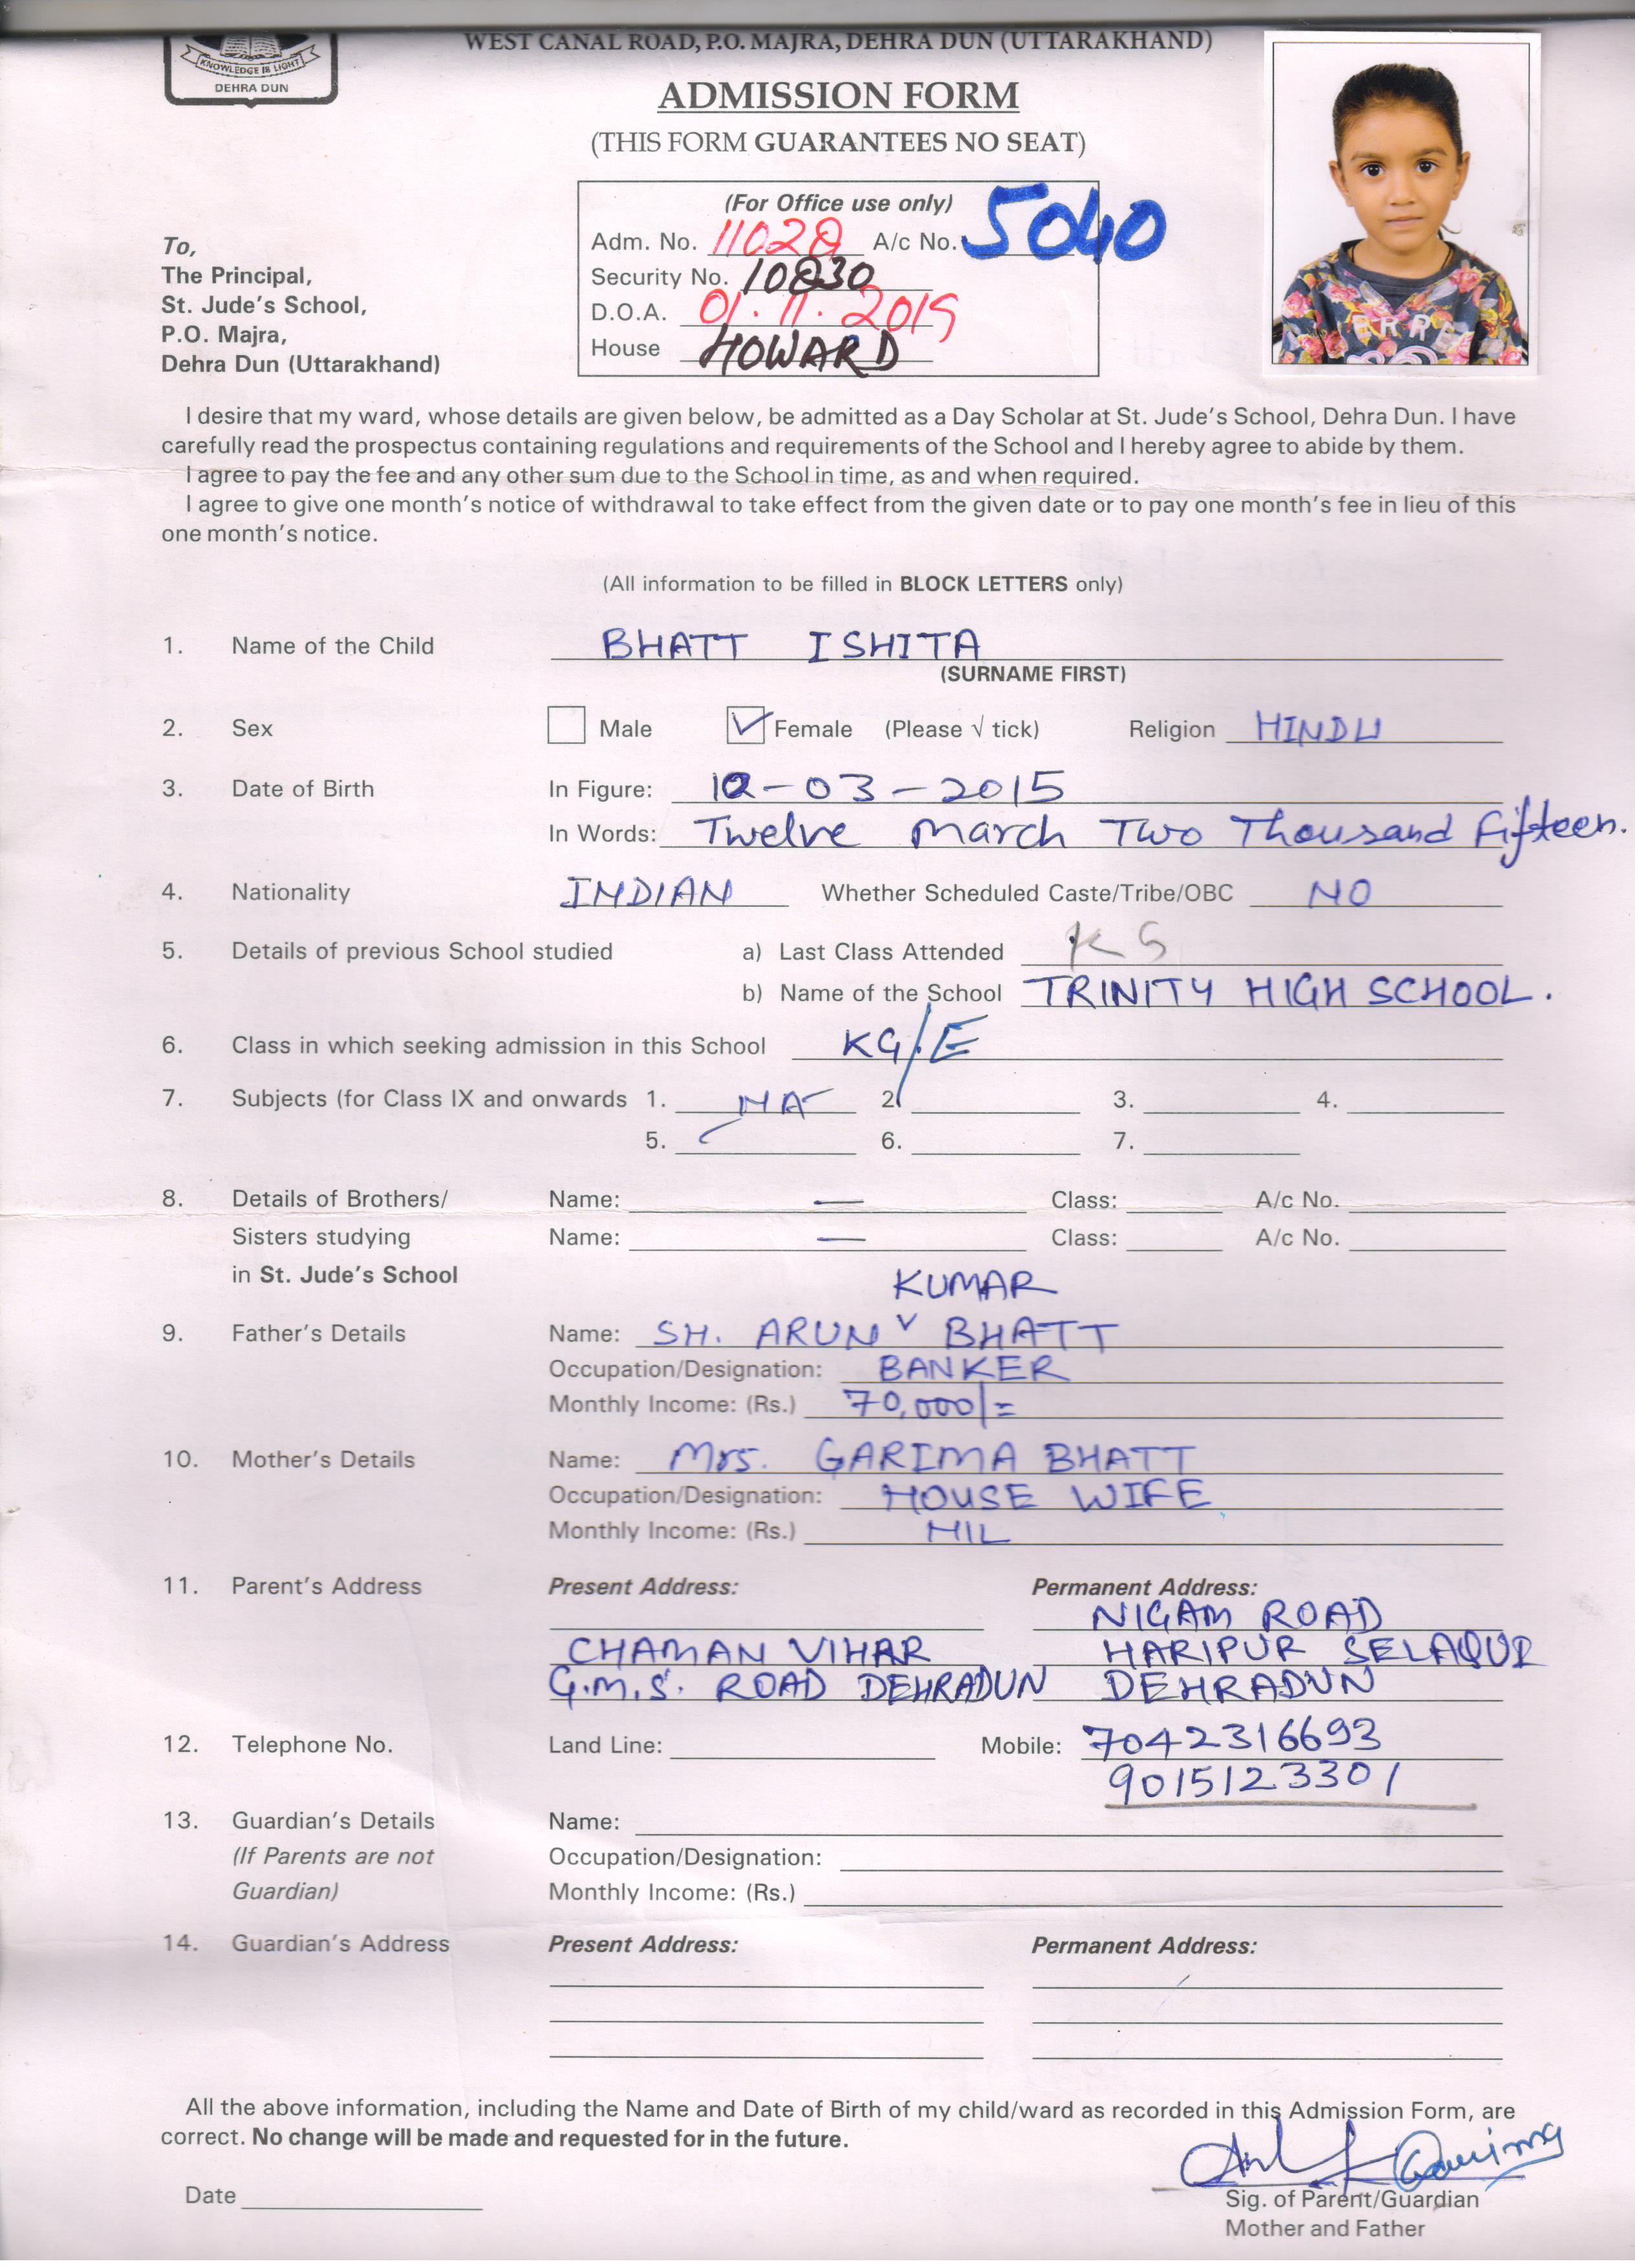 KNOWLEDGE IS LIGHT
DEHRA DUN
WEST CANAL ROAD, P.O. MAJRA, DEHRA DUN (UTTARAKHAND)
ADMISSION FORM
(THIS FORM GUARANTEES NO SEAT)
(For Office use only)
Adm. No. A/c No. 5040
Security No.
D.O.A. 01.11.2019
House HOWARD
To,
The Principal,
St. Jude's School,
P.O. Majra,
Dehra Dun (Uttarakhand)
I desire that my ward, whose details are given below, be admitted as a Day Scholar at St. Jude's School, Dehra Dun. I have
carefully read the prospectus containing regulations and requirements of the School and I hereby agree to abide by them.
I agree to pay the fee and any other sum due to the School in time, as and when required.
I agree to give one month's notice of withdrawal to take effect from the given date or to pay one month's fee in lieu of this
one month's notice.
(All information to be filled in BLOCK LETTERS only)
1. Name of the Child BHATT ISHITA
(SURNAME FIRST)
2. Sex Male Female (Please √ tick) Religion HINDU
3. Date of Birth In Figure: 12-03-2015
In Words: Twelve March Two Thousand Fifteen.
4. Nationality INDIAN Whether Scheduled Caste/Tribe/OBC NO
5. Details of previous School studied a) Last Class Attended
b) Name of the School TRINITY HIGH SCHOOL.
6. Class in which seeking admission in this School KG/E
7. Subjects (for Class IX and onwards 1. NA 2. 3. 4.
5. 6. 7.
8. Details of Brothers/ Name: — Class: A/c No.
Sisters studying Name: — Class: A/c No.
in St. Jude's School
KUMAR
9. Father's Details Name: SH. ARUN BHATT
Occupation/Designation: BANKER
Monthly Income: (Rs.) 70,000/=
10. Mother's Details Name: Mrs. GARIMA BHATT
Occupation/Designation: HOUSE WIFE
Monthly Income: (Rs.) NIL
11. Parent's Address Present Address: Permanent Address:
NIGAM ROAD
CHAMAN VIHAR HARIPUR SELAQUI
G.M.S. ROAD DEHRADUN DEHRADUN
12. Telephone No. Land Line: Mobile: 7042316693
9015123301
13. Guardian's Details Name:
(If Parents are not Occupation/Designation:
Guardian) Monthly Income: (Rs.)
14. Guardian's Address Present Address: Permanent Address:
All the above information, including the Name and Date of Birth of my child/ward as recorded in this Admission Form, are
correct. No change will be made and requested for in the future.
Garima
Date Sig. of Parent/Guardian
Mother and Father